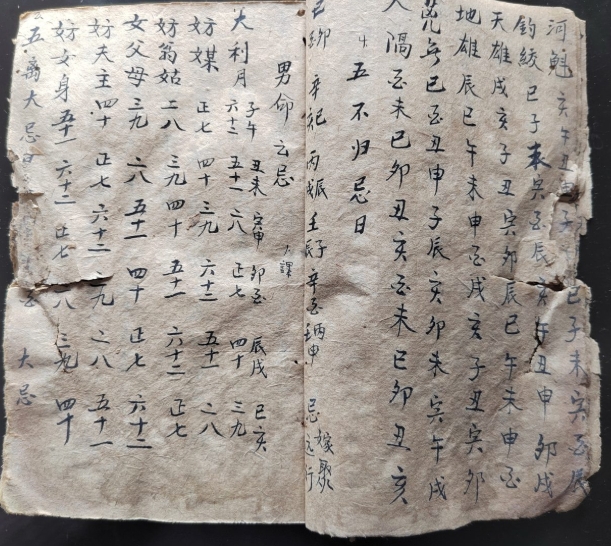 河魁 亥午丑申 巳子未寅酉辰
鈎絞 巳子未寅酉辰亥午丑申卯戌
天雄戌亥子丑寅卯辰巳午未申酉
地雄辰巳午未申酉戌亥子丑寅卯
荒芜巳酉丑申子辰亥卯未寅午戌
人隔酉未巳卯丑亥酉未巳卯丑亥
五不归忌日
己卯 辛巳 丙戌辰 壬子辰 辛酉 丙申 忌嫁娶远行
男命云忌 课
子午 丑未 寅申 卯酉 辰戌 巳亥
大利月 六十二 五十一 二八 正七 四十 三九
妨媒 正七 四十 三九 六十二 五十一 二八
妨翁姑 二八 三九 四十 五十一 六十二 正七
女父母 三九 二八 五十一 四十 正七 六十二
妨夫主 四十 正七 六十二 三九 二八 五十一
妨女身 五十一 六十二 正七 二八 三九 四十
五离大忌日 大忌